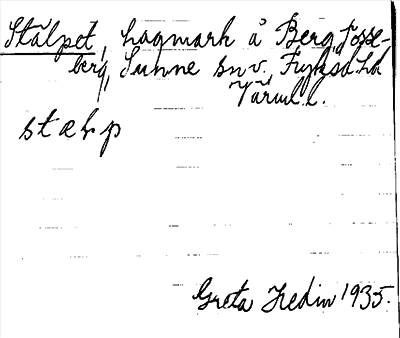 Stälpet, hagmark å Berg, Fosse-
berg, Sunne sn v. Fryksd. hd
Värml. l.
stælp
Greta Hedin 1935.